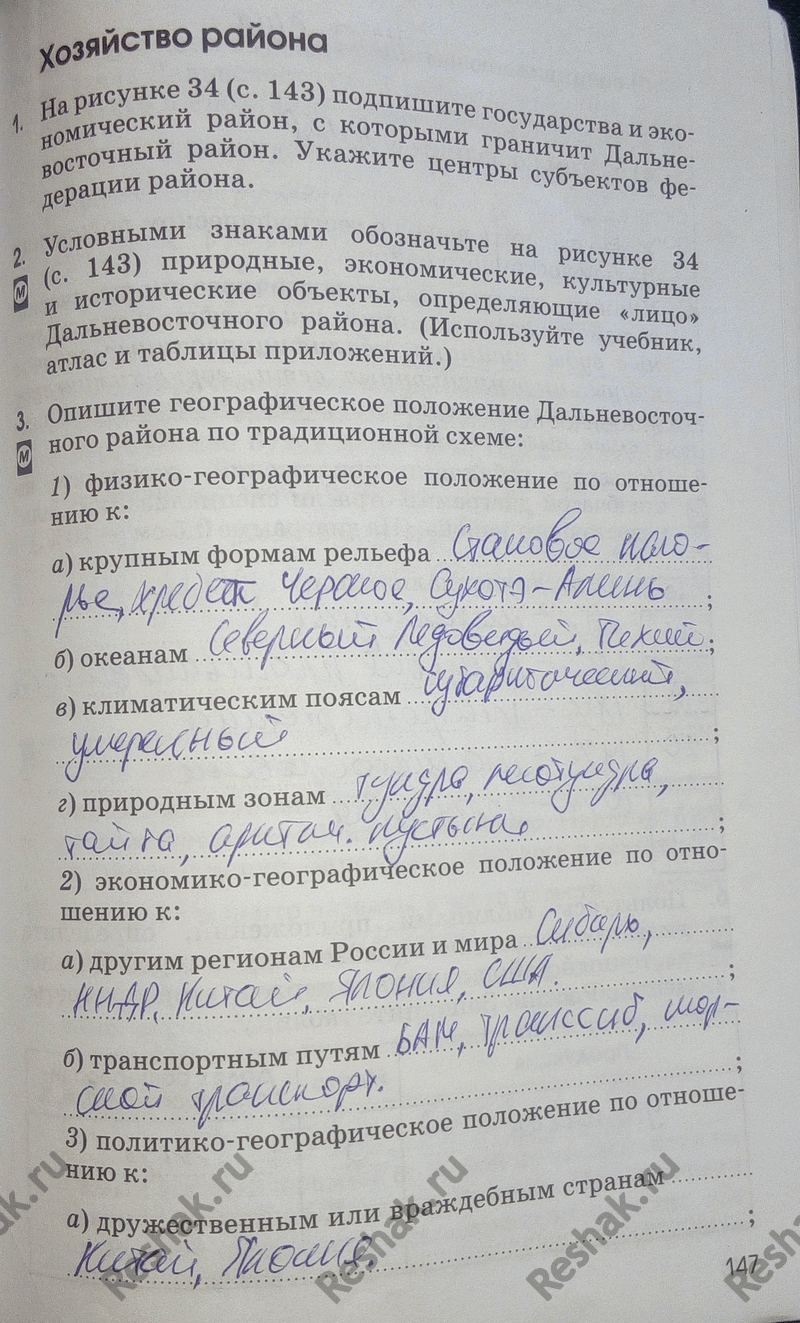 Хозяйство района
1. На рисунке 34 (с. 143) подпишите государства и эко-
номический район, с которыми граничит Дальне-
восточный район. Укажите центры субъектов фе-
дерации района.
2. Условными знаками обозначьте на рисунке 34
М (с. 143) природные, экономические, культурные
и исторические объекты, определяющие «лицо»
Дальневосточного района. (Используйте учебник,
атлас и таблицы приложений.)
3. Опишите географическое положение Дальневосточ-
М ного района по традиционной схеме:
1) физико-географическое положение по отноше-
нию к:
а) крупным формам рельефа Становое наго-
рье, хребет Черского, Сихотэ-Алинь ;
б) океанам Северный Ледовитый, Тихий ;
в) климатическим поясам субарктический,
умеренный ;
г) природным зонам тундра, лесотундра,
тайга, арктич. пустыни ;
2) экономико-географическое положение по отно-
шению к:
а) другим регионам России и мира Сибирь,
КНДР, Китай, Япония, США. ;
б) транспортным путям БАМ, Транссиб, мор-
ской транспорт. ;
3) политико-географическое положение по отноше-
нию к:
а) дружественным или враждебным странам
Китай, Япония. ;
147
Reshak.ru
Reshak.ru
Reshak.ru